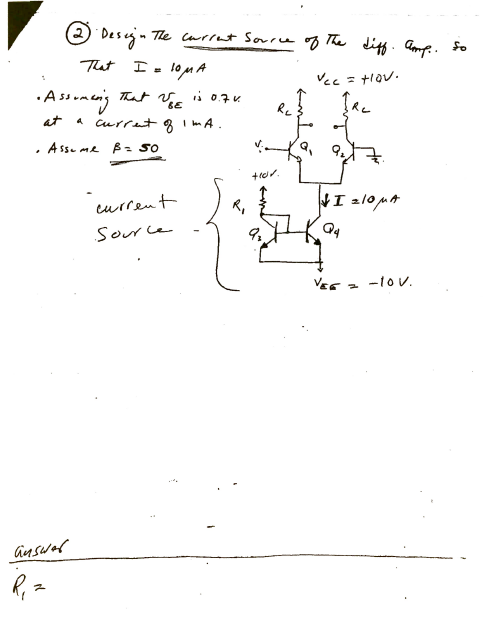 ② Design The current Source of The diff. Amp. so
That I = 10 μA
• Assuming That V_BE is 0.7 v.
at a current of 1 mA.
• Assume β = 50
V_CC = +10V.
R_C
R_C
V.
Q_1
Q_2
+10V.
R_1
I = 10 μA
current
Source
Q_3
Q_4
V_EE = -10V.
answer
R_1 =